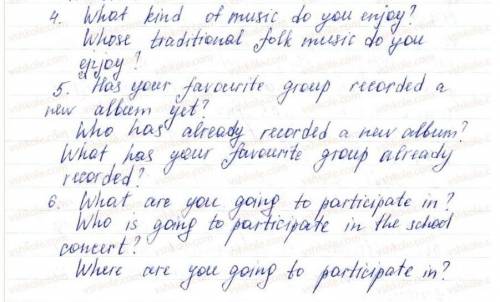 4. What kind of music do you enjoy?
Whose traditional folk music do you
enjoy?
5. Has your favourite group recorded a
new album yet?
Who has already recorded a new album?
What has your favourite group already
recorded?
6. What are you going to participate in?
Who is going to participate in the school
concert?
Where are you going to participate in?